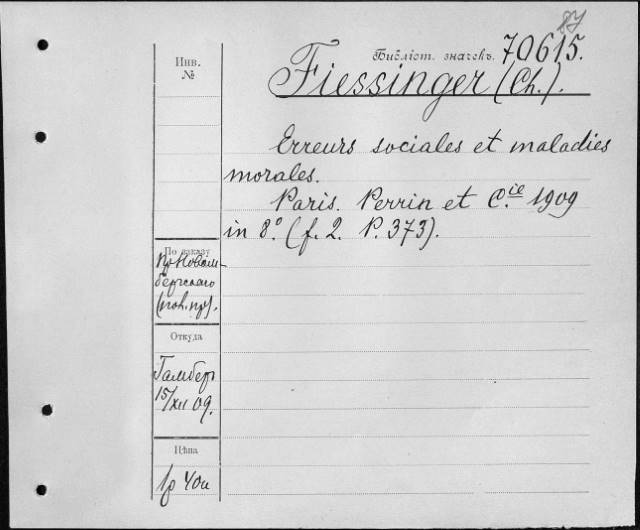 87
Инв.
№
Библіот. значекъ. 70615.
Fiessinger (Ch.).
Erreurs sociales et maladies
morales.
Paris. Perrin et C.ie 1909
in 8.° (f. 2. P. 373).
По заказу
Пр Новом-
бергскаго
Откуда
15/XII 09.
Цѣна
1р 40к